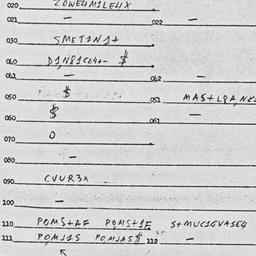 020. ZOWE4M1LE4X
021. — 022 —
030. SMET1N1+
040. D1N81CE4+- $
041. — 042 —
050 $ 051 MAS+L8A
060 $ 061 —
070. O
080. —
090. CVUR3X
100. —
110 PQMS+AF PQMS+1F S+MUC1GVASE4
111. PQMJ1S PQMJAS$ 112 —